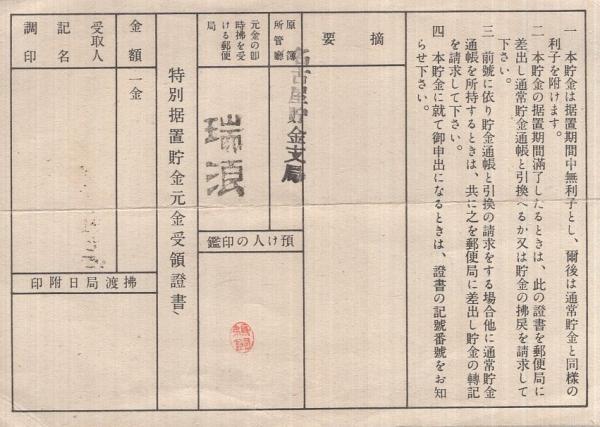 一 本貯金は据置期間中無利子とし、爾後は通常貯金と同様の
利子を附けます。
二 本貯金の据置期間滿了したるときは、此の證書を郵便局に
差出し通常貯金通帳と引換へるか又は貯金の拂戻を請求して
下さい。
三 前號に依り貯金通帳と引換の請求をする場合他に通常貯金
通帳を所持するときは、共に之を郵便局に差出し貯金の轉記
を請求して下さい。
四 本貯金に就て御申出になるときは、證書の記號番號をお知
らせ下さい。
摘要
原簿
所管廳
名古屋貯金支局
元金の卽
時拂を受
ける郵便
局
瑞浪
預け人の印鑑
特別据置貯金元金受領證書
金額
一金
受取人
記名
調印
拂渡局日附印